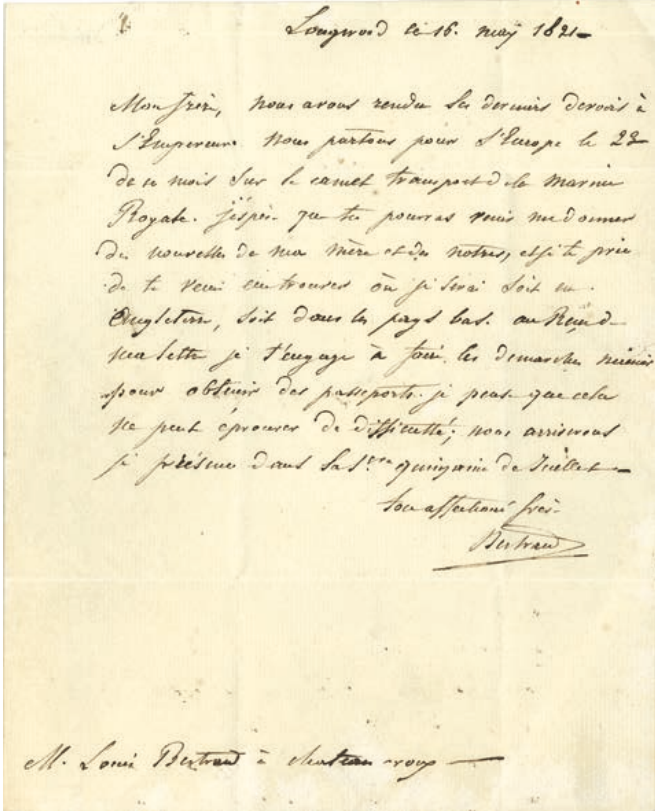 Longwood le 16. may 1821
Mon frère, nous avons rendu les derniers devoirs à
l'Empereur. Nous partons pour l'Europe le 22
de ce mois sur le camel transport de la marine
Royale. j'espère que tu pourras venir me donner
des nouvelles de ma mère et des notres, et je te prie
de te venir me trouver où je serai soit en
Angleterre, soit dans les pays bas. au Reçu de
ma lettre je t'engage à faire les demarches
pour obtenir des passeports. je pense que cela
ne peut éprouver de difficulté; nous arriverons
je présume dans la 1.ère quinzaine de Juillet
ton affectioné frère
Bertrand
M. Louis Bertrand à chateauroux